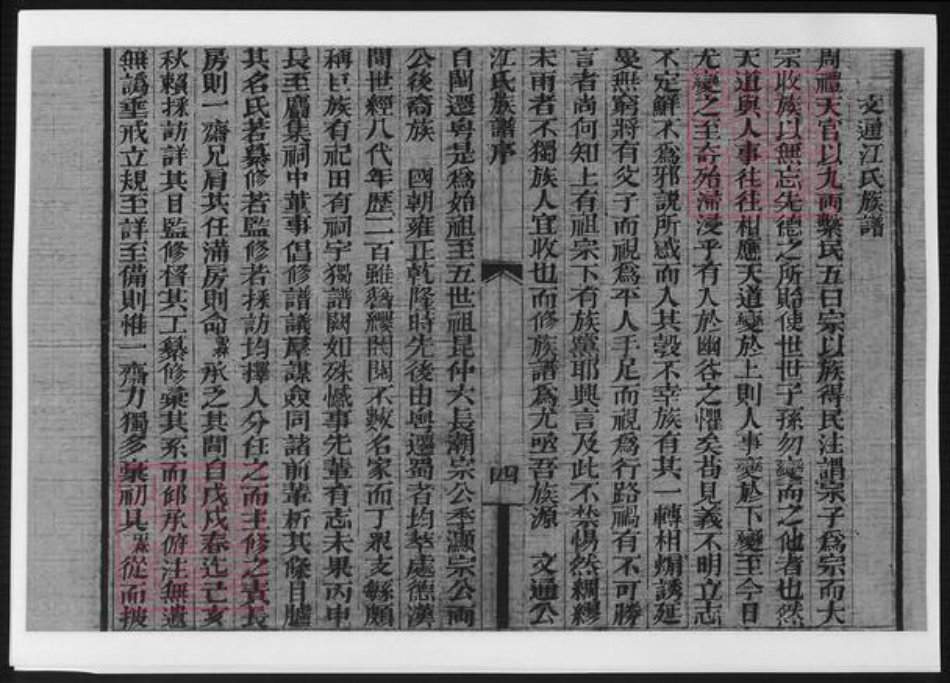 文通江氏族譜
周禮天官以九兩繫民五曰宗以族得民注謂宗子爲宗而大
宗收族以無忘先德之所貽使世世子孫勿變而之他者也然
天道與人事往往相應天道變於上則人事變於下變至今日
尤變之至奇殆浸浸乎有入於幽谷之懼矣苟見義不明立志
不定鮮不爲邪說所惑而人其彀不幸族有其一轉相煽誘延
蔓無窮將有父子而視爲平人手足而視爲行路禍有不可勝
言者尚何知上有祖宗下有族黨耶興言及此不禁惕然綢繆
未雨者不獨族人宜收也而修族譜爲尤亟吾族源 文通公
江氏族譜序
四
自閩遷粵是爲始祖至五世祖昆仲六長潮宗公季灝宗公兩
公後裔族 國朝雍正乾隆時先後由粵遷蜀者均萃處德漢
間世經八代年歷二百雖簪纓閥閱不數名家而丁眾支繁頗
稱巨族有祀田有祠宇獨譜闕如殊憾事先輩有志未果丙申
長至臚集祠中董事倡修譜議羣謀僉同諸前輩析其條目臚
其名氏若纂修若監修若採訪均擇人分任之而主修之責長
房則一齋兄肩其任滿房則命 承之其間自戊戌春迄己亥
秋賴採訪詳其目監修督其工纂修彙其系而邮承俯注無遺
無譌垂戒立規至詳至備則惟一齋力獨多彙初具 從而披